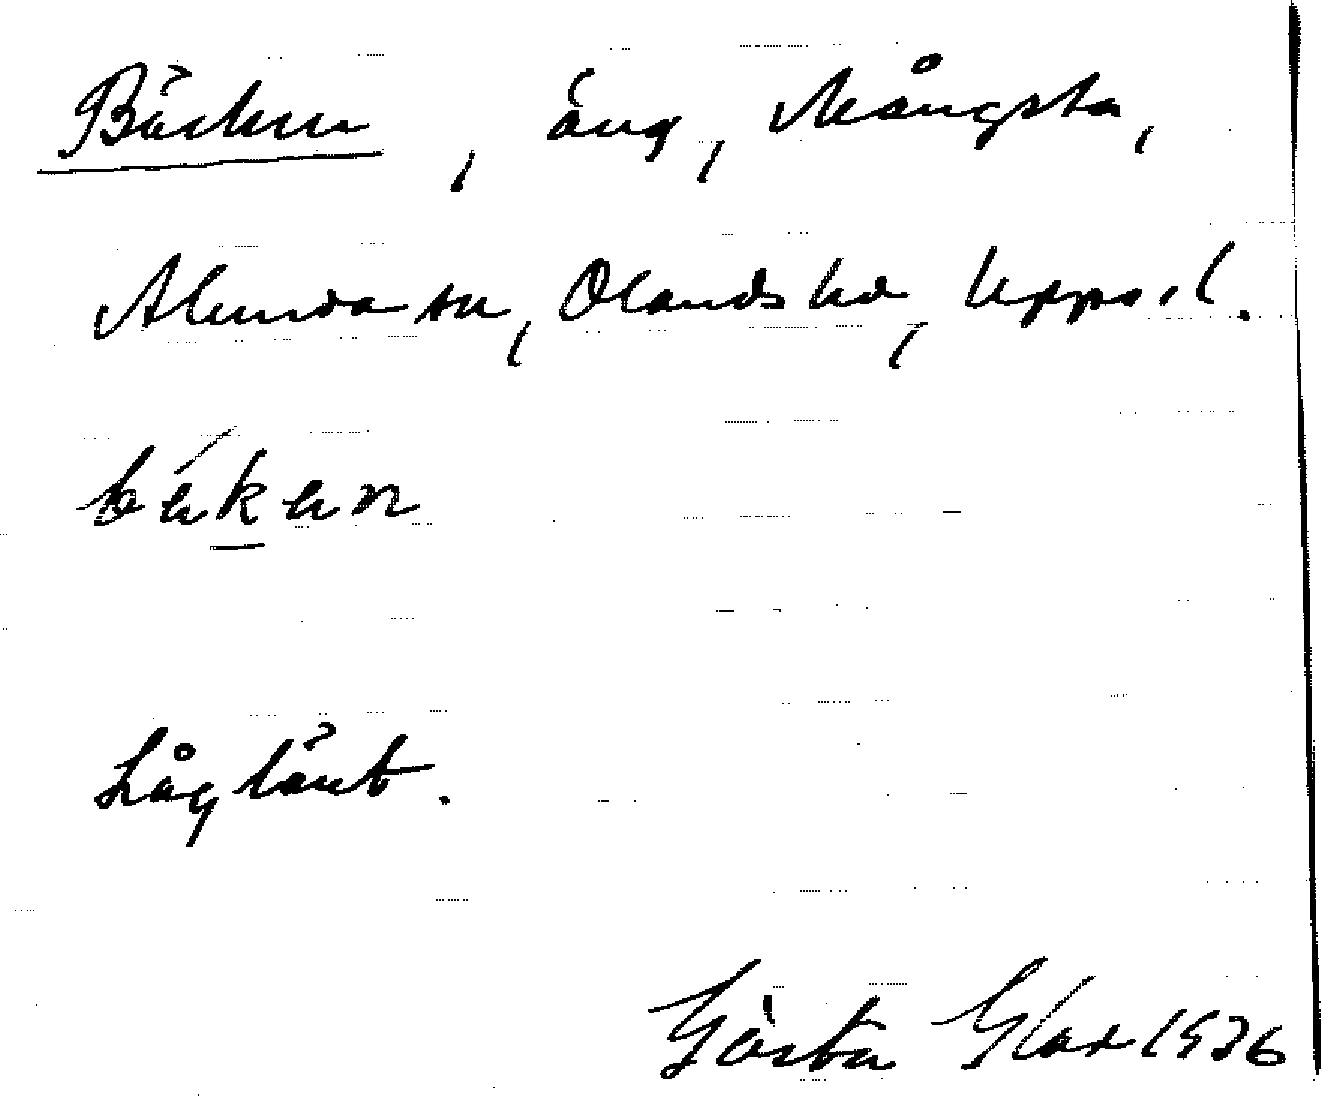 Bäcken, äng, Mångsta,
Alunda sn, Olands hd, Upps. l.
bäkän
Låglänt.
Gösta Glad 1936